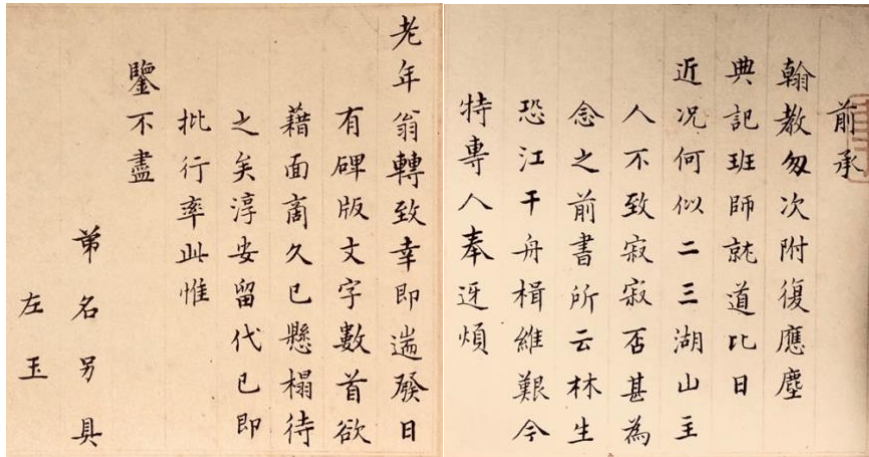 前承
翰教匆次附復應塵
典記班師就道比日
近況何似二三湖山主
人不致寂寂否甚為
念之前書所云林生
恐江干舟楫維艱今
特專人奉迓煩
老年翁轉致幸即遄發日
有碑版文字數首欲
藉面商久已懸榻待
之矣淳安留代已即
批行率此惟
鑒不盡
弟名另具
左玉